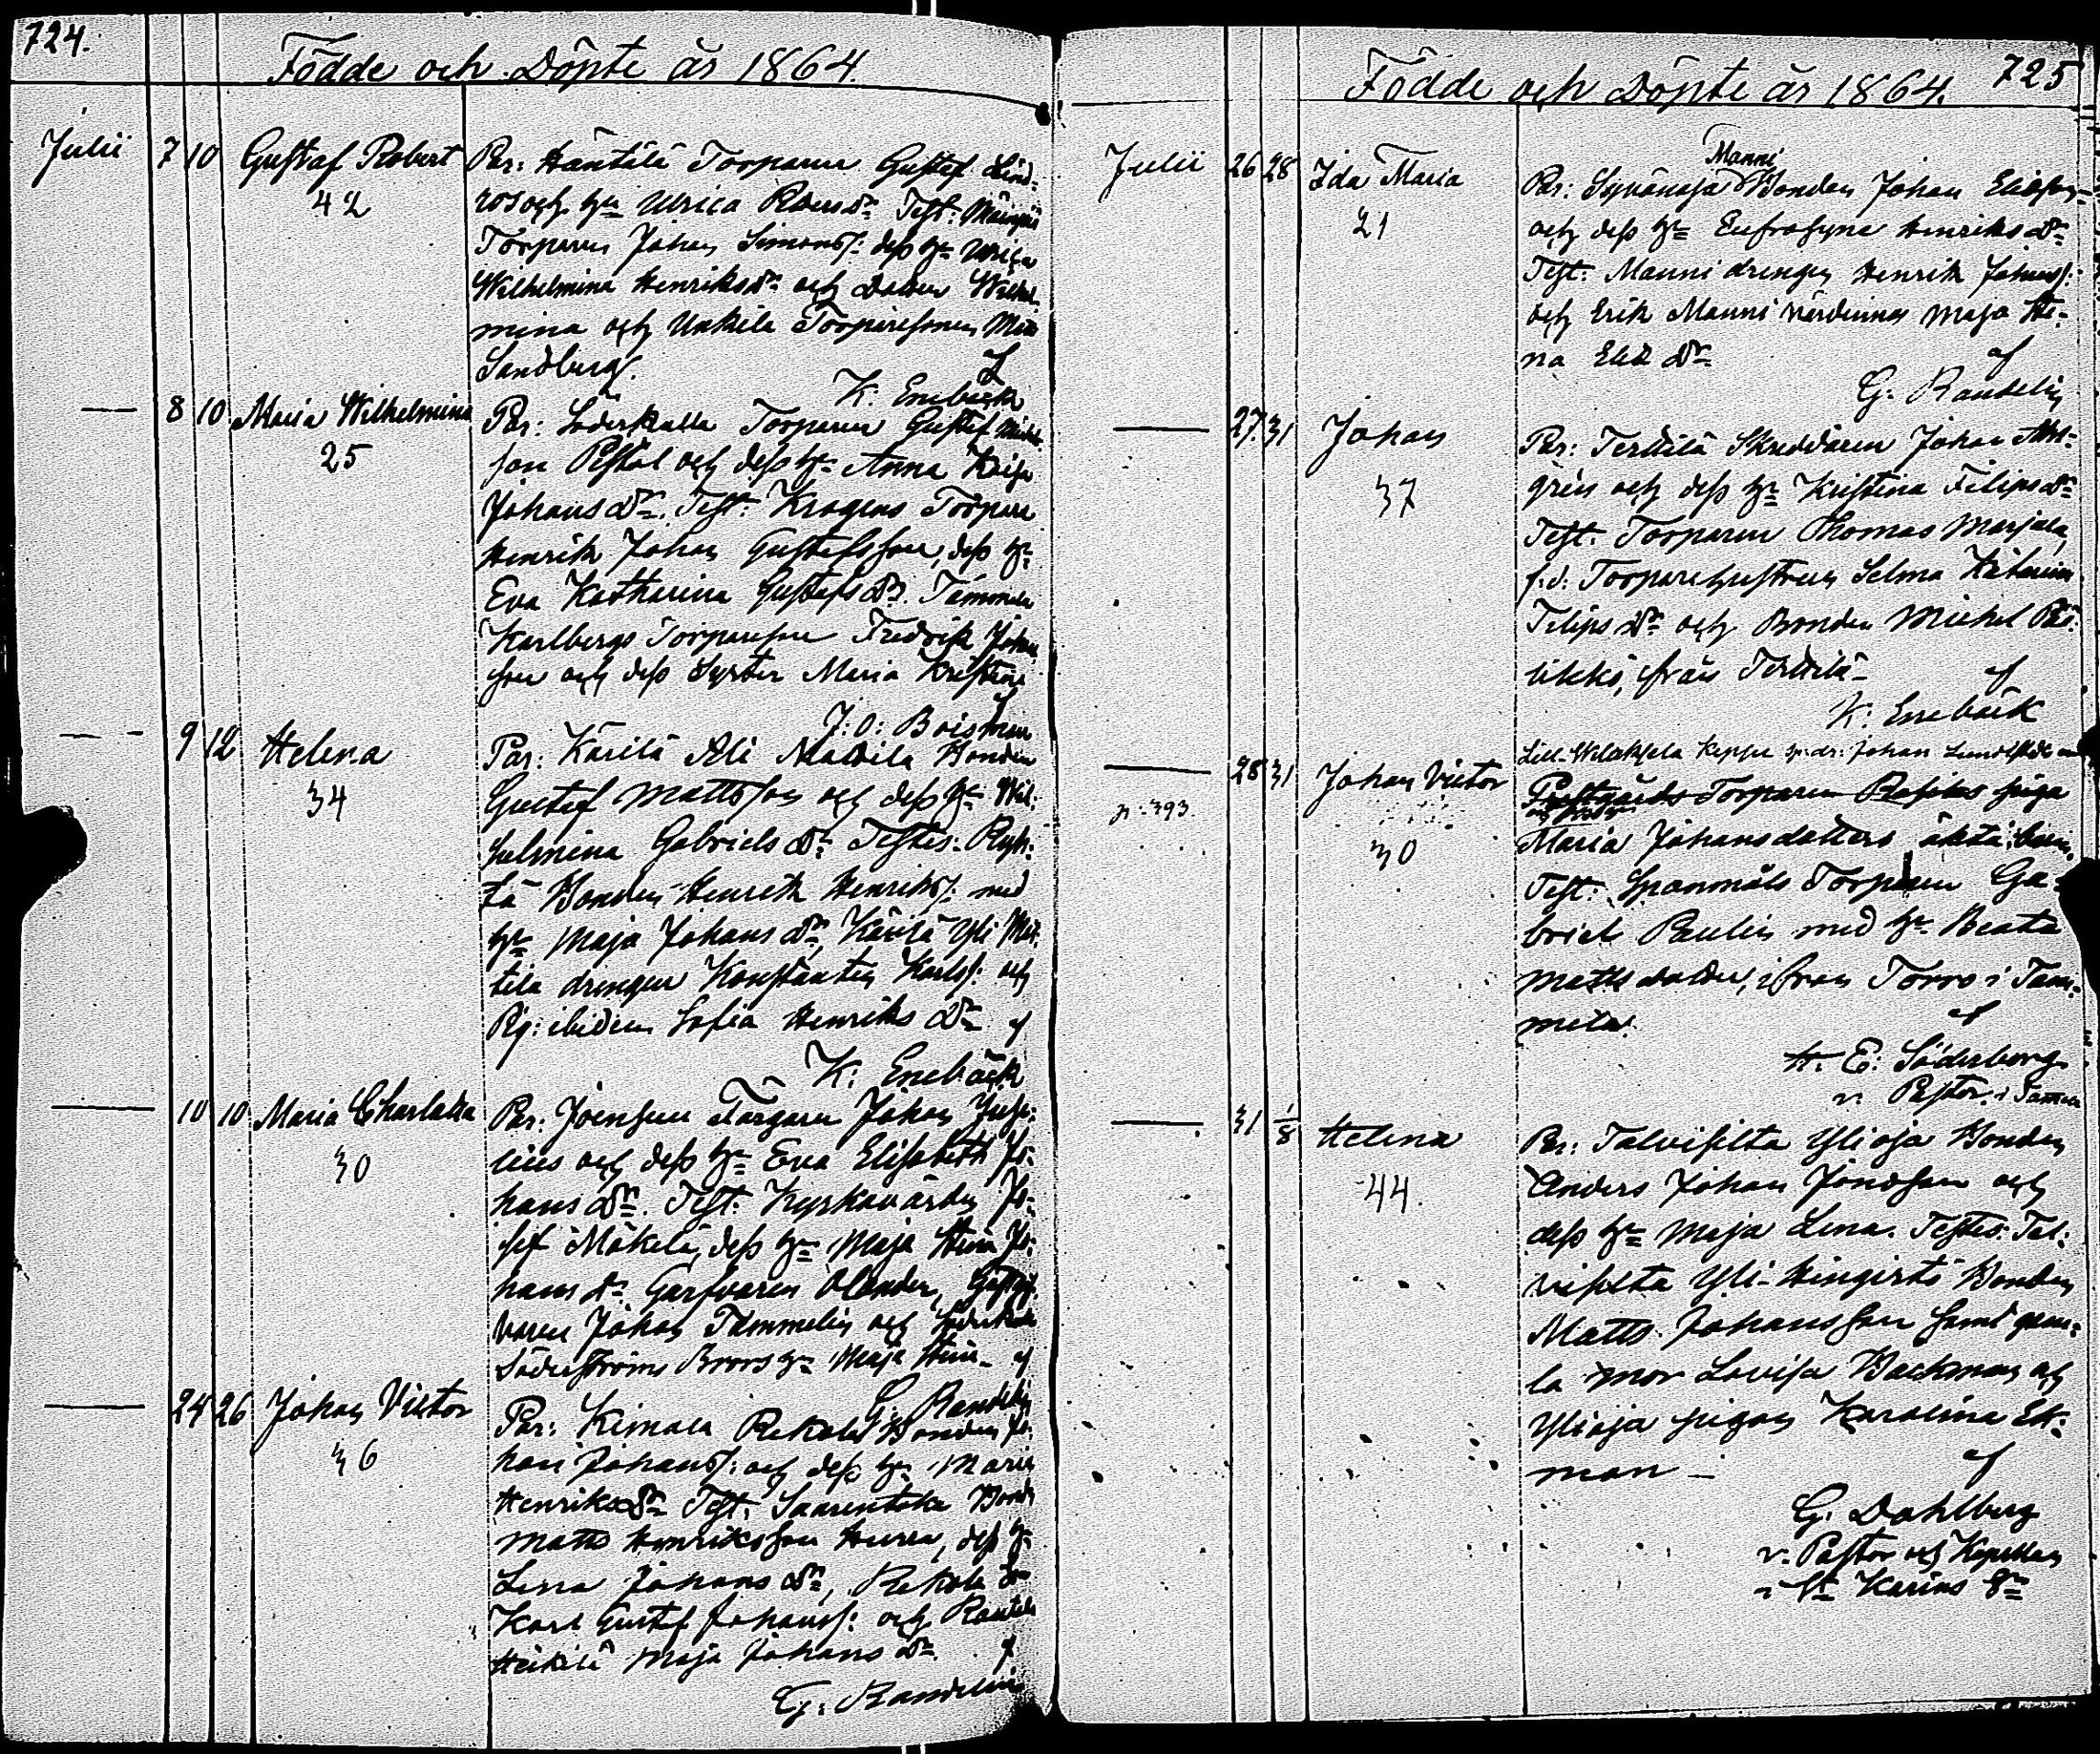 724.
Födde och Döpte år 1864.
Julii 7 10 Gustaf Robert
42
Par: Häntälä Torparen Gustaf Lind-
ros och hu Ulrica
Torparen Johan Simonss: dess hu Ulrica
Wilhelmina Henriksdr och Dotter Wilhel-
mina och Unkila
Sandberg.
K. Enebäck
— 8 10 Maria Wilhelmina
25
Par: Torparen Gustaf
son Pistol och dess hu Anna Kaisa
Johansdr. Test: Krogens Torpare
Henrik Johan Gustafsson, dess hu
Eva Katharina Gustafsdr.
Karlbergs Torparesson Fredrik Johan
son och dess Syster Maria Kristina
J: O: Boisman
— 9 12 Helena
34
Par: Käritä Ali Mattila Bonden
Gustaf Mattsson och dess hu Wil-
helmina Gabrielsdr. Testes:
Bonden Henrik Henrikss: med
hu Maja Johansdr, Käritä Yli Mat-
tila drengen Konstantin Karlss: och
Pig: ibidem Sofia Henriksdr af
K: Enebäck
— 10 10 Maria Charlotta
30
Par: Joensuu Färgaren Johan
lius och dess hu Eva Elisabeth Jo-
hansdr. Test: Kyrkovärden Jo-
sef Mäkelä, dess hu Maja Stina Jo-
hansdr. Garfvaren Olander,
varen Johan Tammelin och
Söderströms Brors hu Maja Stina af
G. Randelin
— 24 26 Johan Victor
36
Par: Kimala Rekola Bonden Jo-
han Johanss: och dess hu Maria
Henriksdr Test: Saarentaka Bond
Matts Henriksson Hurra, dess hu
Lena Johansdr, Rekola
Karl Gustaf Johanss: och
Heikilä Maja Johansdr. af
G: Randelin
725
Födde och Döpte år 1864.
Julii 26 28 Ida Maria
21
Manni
Par: Syvänoja Bonden Johan
och dess hu Eufrosyne Henriksdr
Test: Manni drengen Henrik Johanss:
och Erik Manni värdinnan Maja Ste-
na dr af
G. Randelin
— 27. 31 Johan
37
Par: Terttilä Skreddaren Johan
grén och dess hu Kristina Filipsdr
Test: Torparen Thomas Marjala,
f.d: Torparehustrun Selma
Filipsdr och Bonden Michel
ikkö, från Terttilä af
K: Enebäck
— 28 31 Johan Victor
p: 393.
30
Johan
Torparen piga
Maria Johansdotters äkta barn.
Test: Torparen Ga-
briel Paulin med hu Beata
Mattsdotter, ifrån Torro i Tam-
mela. af
H. E: Söderborg
v. Pastor i
— 31 1/8 Helena
44.
Par: Talvisilta Ylioja Bonden
Anders Johan och
dess hu Maja Lena. Testes: Tal-
visilta Yli-Hingistö Bonden
Matts Johansson samt gam-
la mor Lovisa Backman och
Ylioja pigan Karolina Ek-
man — af
G. Dahlberg
v. Pastor och Kapellan
i St Karins Sn